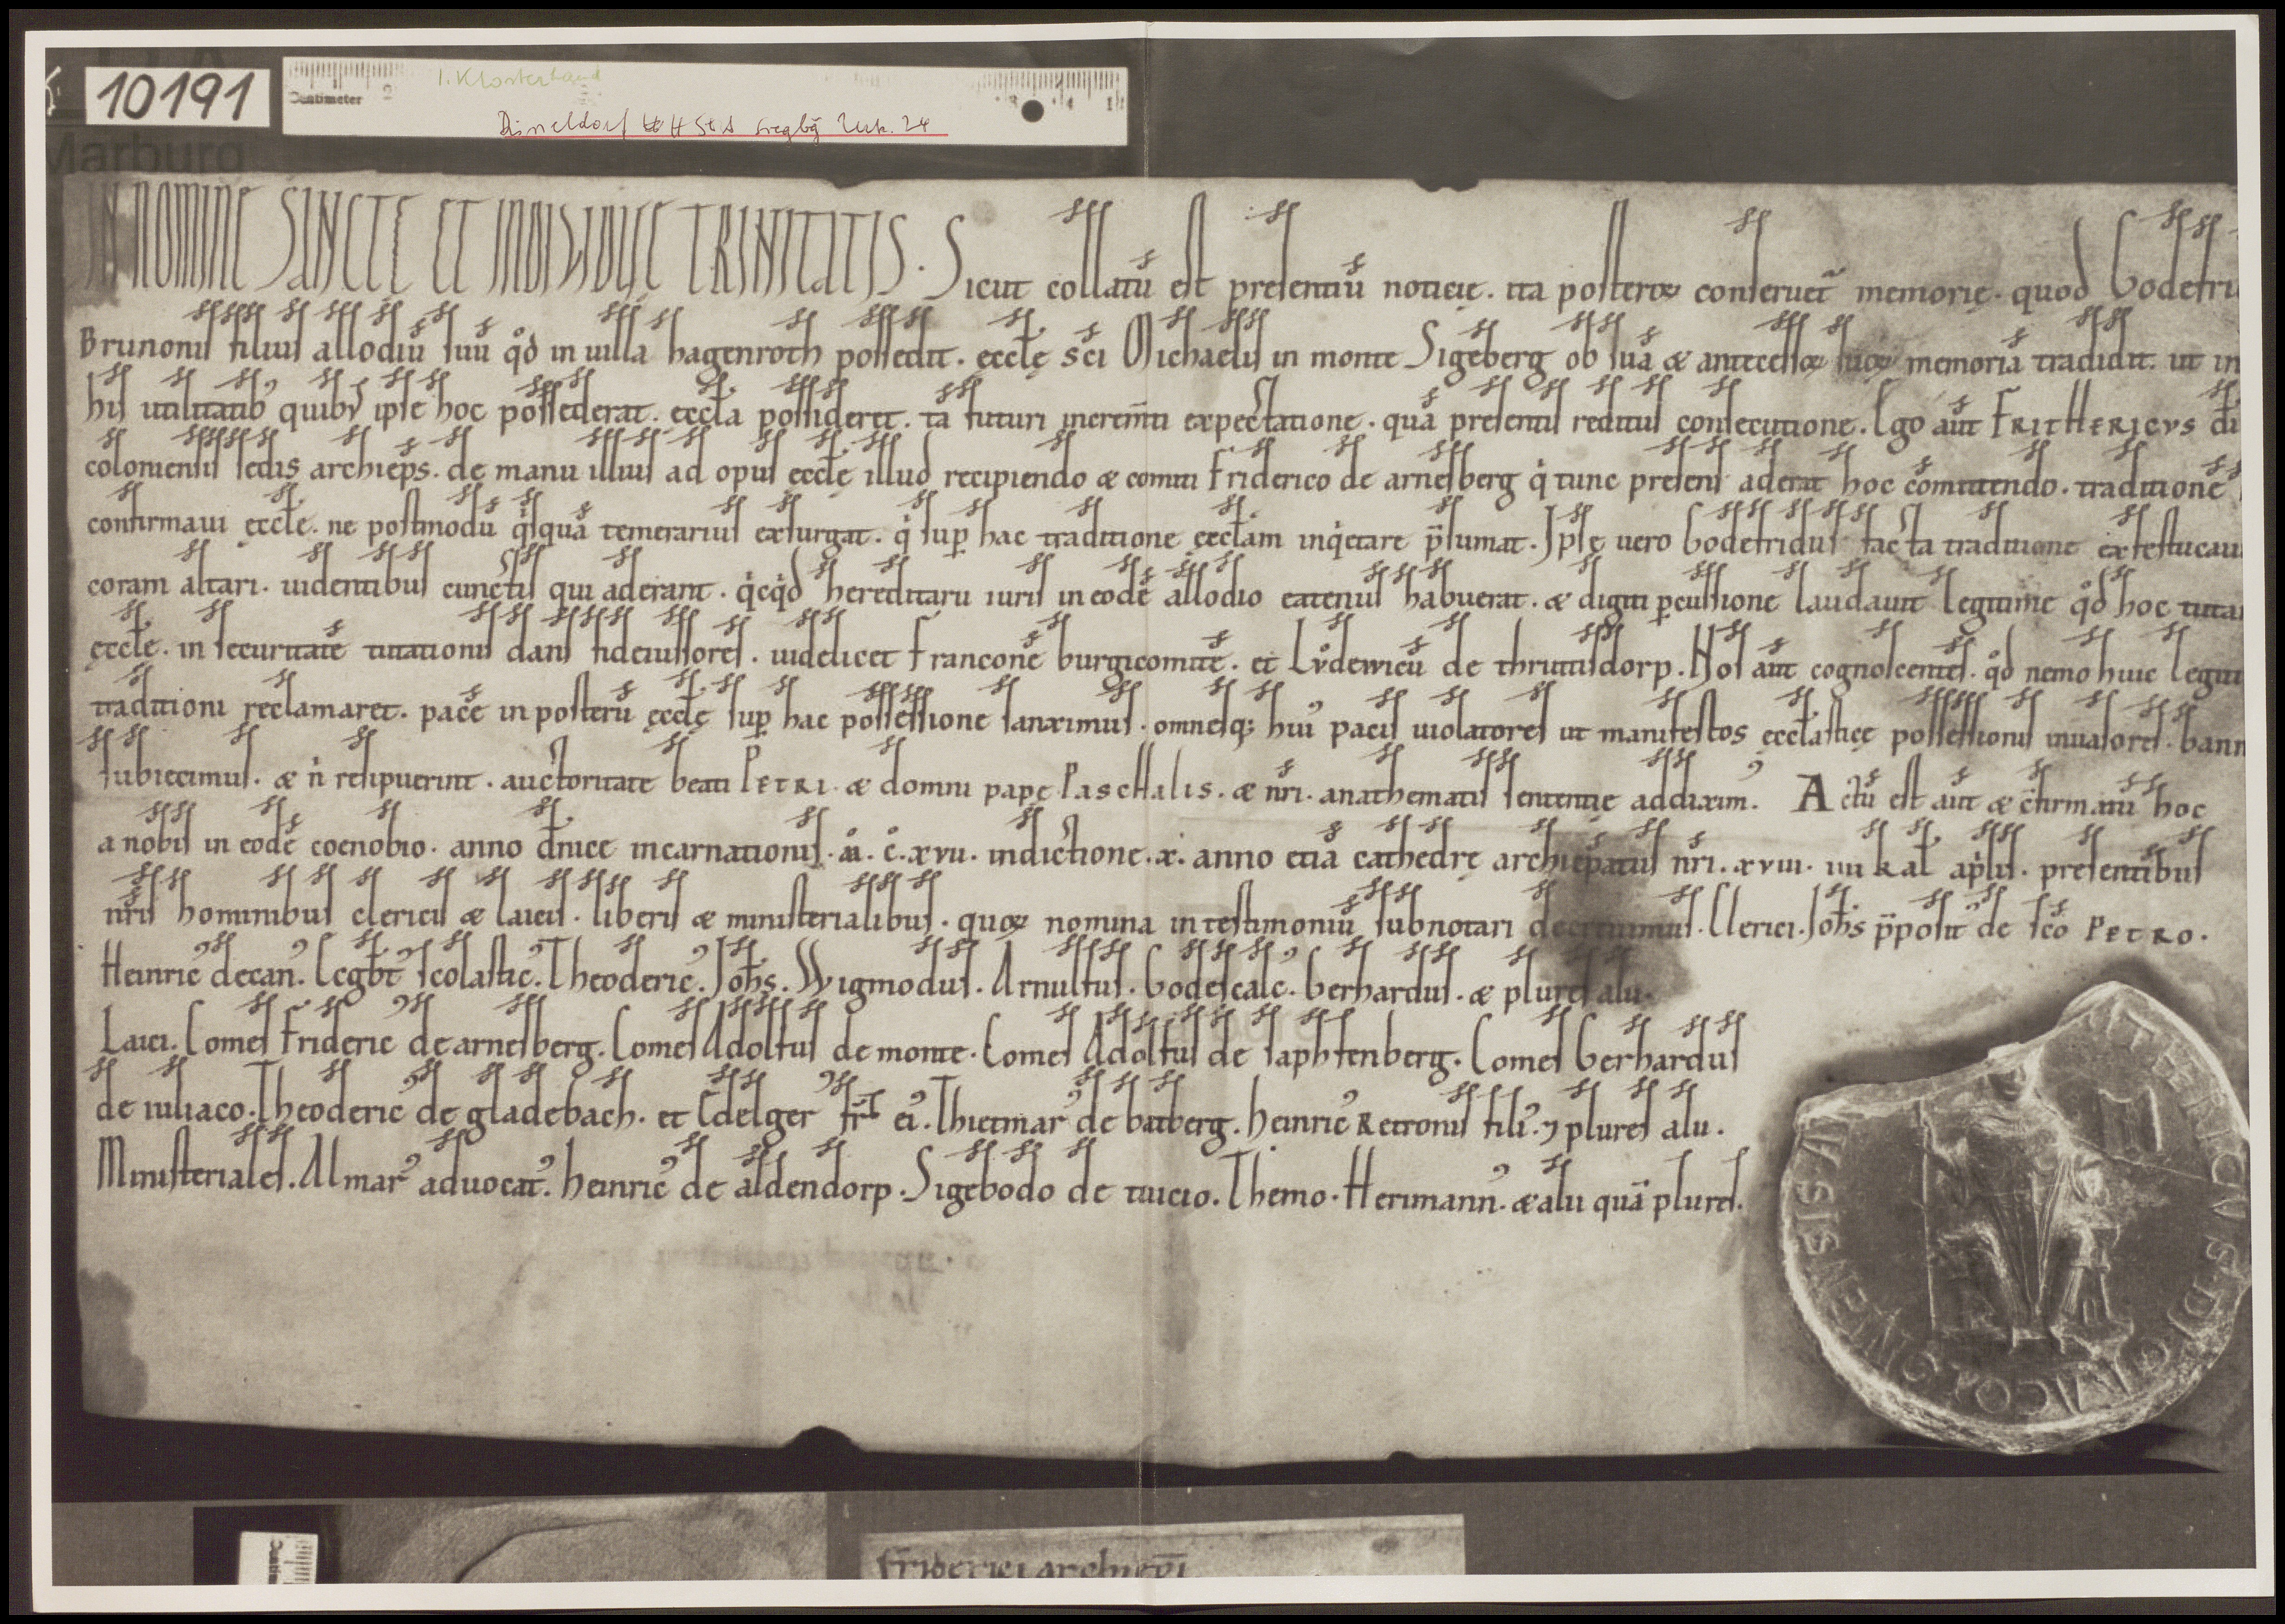 10191
Centimeter 2
1. Klosterhand
Düsseldorf HStA Siegbg Urk. 24
Marburg
IN NOMINE SANCTE ET INDIVIDUE TRINITATIS. Sicut collatū est presentiū noticie. ita posteroꝝ conseruet̄ memorię. quod Godefri
Brunonis filius allodiū suū qͦd in uilla hagenroth possedit. ęccłę sc̄i Michaelis in monte Sigeberg ob suā & antecessoꝝ suoꝝ memoriā tradidit. ut in
his utilitatib' quib' ipse hoc possederat. ęccła possideret. tā futuri increm̄ti expectatione. quā presentis reditus consecutione. Ego aūt FRITHERICVS di
coloniensis sedis archiep̄s. de manu illius ad opus ęccłę illud recipiendo & comiti Friderico de arnesberg qͥ tunc presens aderat hoc cōmittendo. traditionē
confirmaui ęccłę. ne postmodū qͥsquā temerarius exsurgat. qͥ sup̱ hac traditione ęccłam inqͥetare p̄sumat. Ipsę uero Godefridus facta traditione exfestucaui
coram altari. uidentibus cunctis qui aderant. qͥcqͥd hereditarii iuris in eodē allodio eatenus habuerat. & digiti p̱cussione laudauit legitime qͦd hoc tuta
ęccłę. in securitatē tutationis dans fideiussores. uidelicet Franconē burgicomitē. et Lůdewicū de thrutisdorp. Nos aūt cognoscentes. qͦd nemo huic legiti
traditioni reclamaret. pacē in posterū ęccłę sup̱ hac possessione sanximus. omnesq; hui' pacis uiolatores ut manifestos ęccłasticę possessionis inuasores. bann
subiecimus. & n̄ resipuerint. auctoritate beati PETRI. & domni pape PascHalis. & nr̄i. anathematis sententię addixim'. Actū est aūt & c̄firmatū hoc
a nobis in eodē coenobio. anno dn̄ice incarnationis. m̊. c̊. xvii. indictione. x. anno etiā cathedrę archiep̄atus nr̄i. xviii. iiii kał ap̱lis. presentibus
nr̄is hominibus clericis & laicis. liberis & ministerialibus. quoꝝ nomina in testimoniū subnotari decreuimus. Clerici. Joh̄s p̄posit' de sc̄o PETRO.
Heinric' decan'. Ecgb̄t' scolastic'. Theoderic'. Joh̄s. Wigmodus. Arnulfus. Godescalc'. Gerhardus. & plures alii.
Laici. Comes Frideric' de arnesberg. Comes Adolfus de monte. Comes Adolfus de saphfenberg. Comes Gerhardus
de iuliaco. Theoderic' de gladebach. et Edelger fr̄ ei'. Thietmar' de batberg. heinric' Retronis fili'. ⁊ plures alii.
Ministeriales. Almar' aduocat'. heinric' de aldendorp. Sigebodo de tuicio. Themo. Herimann'. & alii quā plures.
Friderici archiep̄i